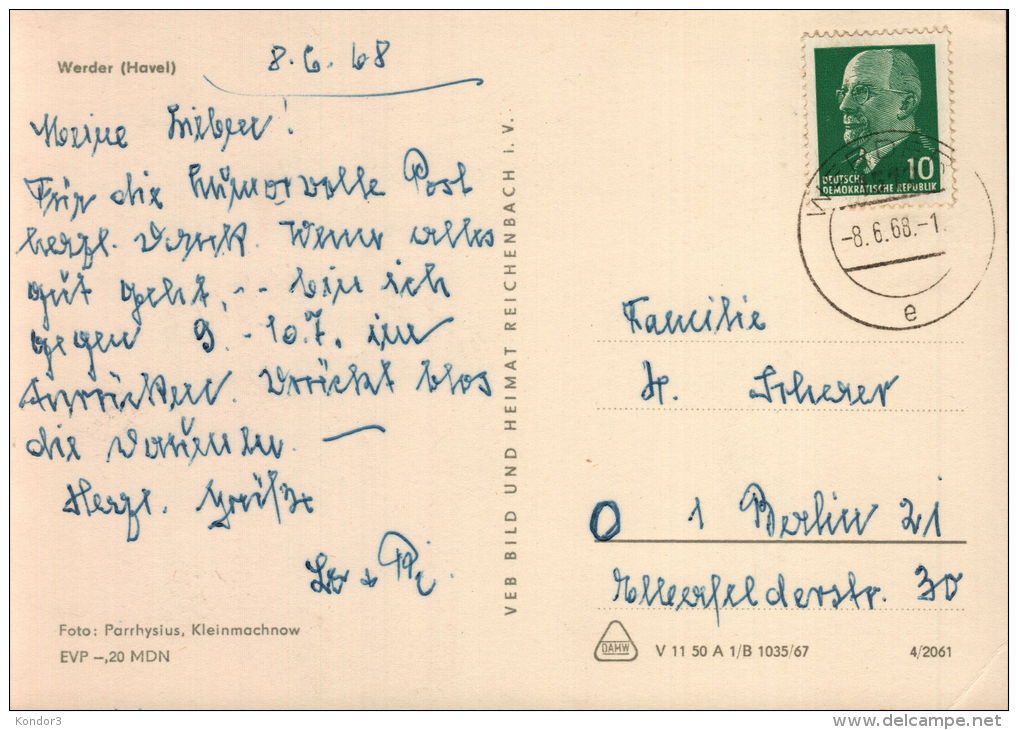 Werder (Havel)
8.6.68
Meine Lieben!
Für die humorvolle Post
herzl. Dank. Wenn alles
gut geht, -- bin ich
gegen 9.-10.7. im
Anrücken. Drückt blos
die Daumen. —
Herzl. Grüße
Foto: Parrhysius, Kleinmachnow
EVP –,20 MDN
VEB BILD UND HEIMAT REICHENBACH I. V.
10
DEUTSCHE
DEMOKRATISCHE REPUBLIK
-8.6.68.-1
e
Familie
H. Scherer
1 Berlin 21
Elberfelderstr. 30
DAMW
V 11 50 A 1/B 1035/67
4/2061
Kondor3
www.delcampe.net